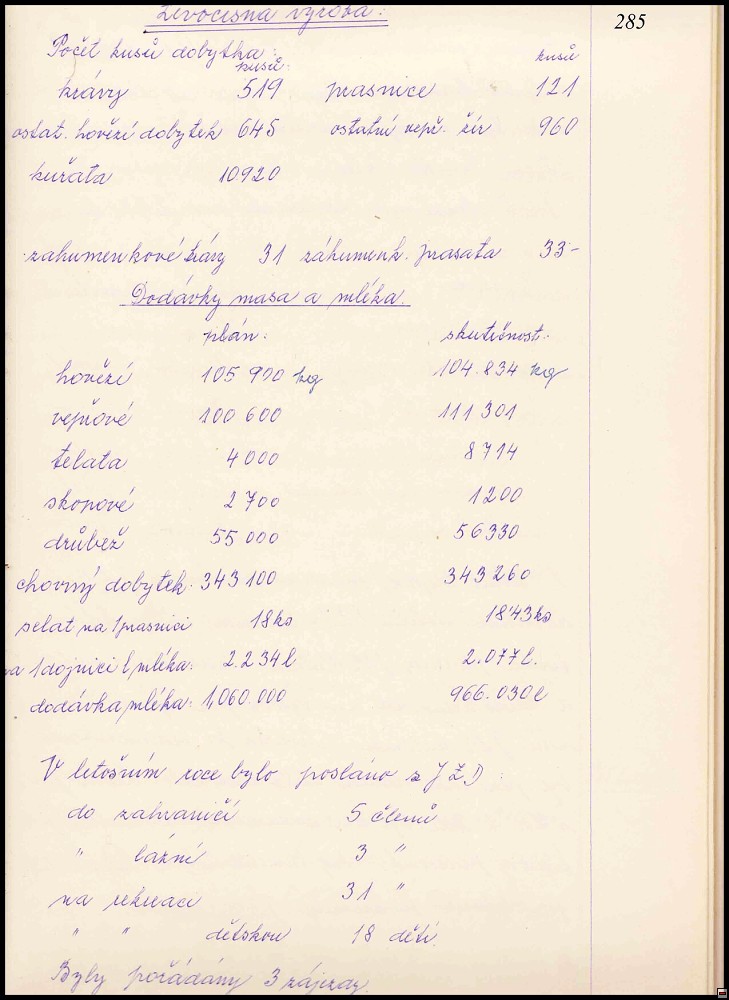 285
Živočišná výroba:
Počet kusů dobytka:
kusů: kusů
krávy 519 prasnice 121
ostat. hovězí dobytek 645 ostatní vepř. žír 960
kuřata 10920
záhumenkové krávy 31 záhumenk. prasata 33-
Dodávky masa a mléka.
plán: skutečnost:
hovězí 105 900 kg 104.834 kg
vepřové 100 600 111 301
telata 4 000 8 714
skopové 2 700 1200
drůbež 55 000 56 330
chovný dobytek: 343 100 343 260
selat na 1 prasnici 18 ks 18'43 ks
na 1 dojnici l mléka: 2.234 l 2.077 l.
dodávka mléka: 1,060.000 966.030 l
V letošním roce bylo posláno z JZD:
do zahraničí 5 členů
" lázní 3 "
na rekreaci 31 "
" " dětskou 18 dětí.
Byly pořádány 3 zájezdy.